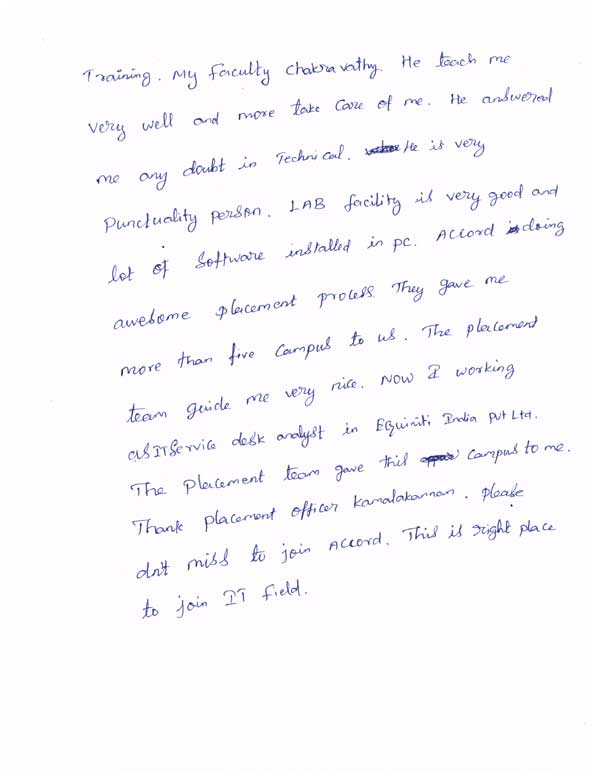 Training. My faculty Chakravathy. He teach me
very well and more take care of me. He answered
me any doubt in Technical. He is very
Punctuality person. LAB facility is very good and
lot of Software installed in pc. Accord is doing
awesome placement process. They gave me
more than five campus to us. The placement
team guide me very nice. Now I working
as IT Service desk analyst in Equiniti India Pvt Ltd.
The placement team gave this campus to me.
Thank placement officer Kamalakannan. Please
dn't miss to join Accord. This is right place
to join IT field.